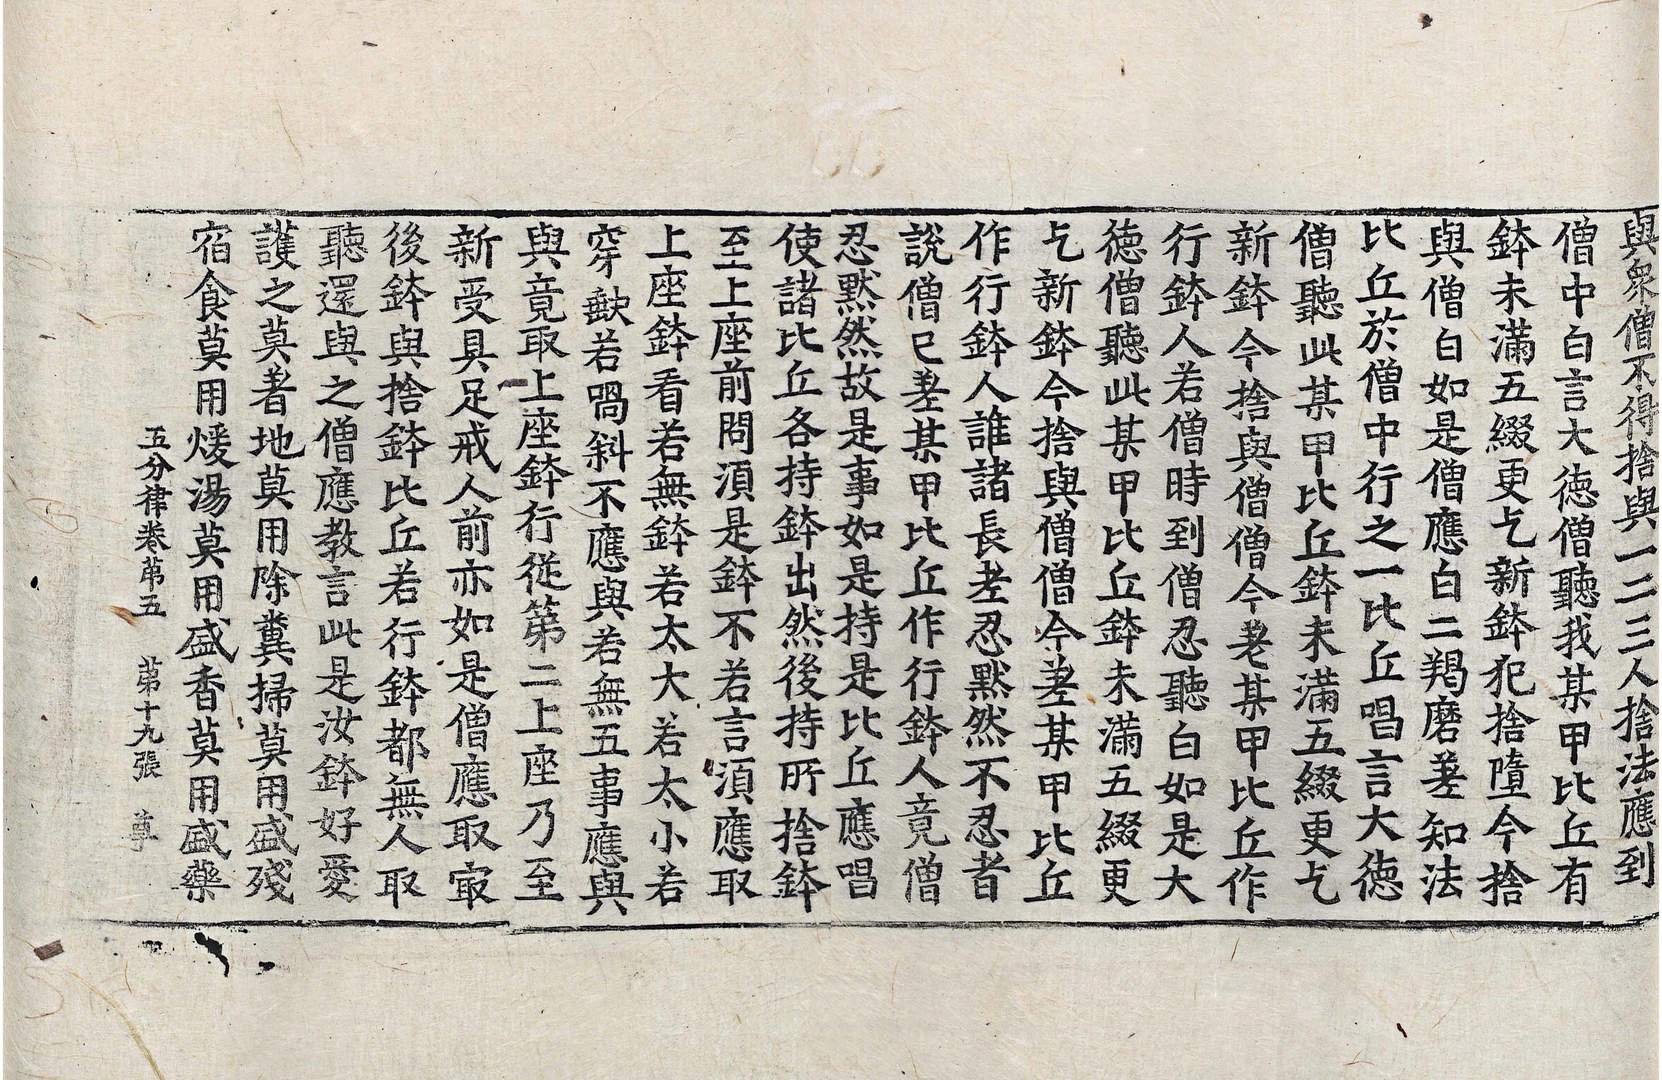 與衆僧不得捨與一二三人捨法應到
僧中白言大徳僧聽我某甲比丘有
鉢未滿五綴更乞新鉢犯捨墮今捨
與僧白如是僧應白二羯磨差知法
比丘於僧中行之一比丘唱言大徳
僧聽此某甲比丘鉢未滿五綴更乞
新鉢今捨與僧僧今差某甲比丘作
行鉢人若僧時到僧忍聽白如是大
徳僧聽此某甲比丘鉢未滿五綴更
乞新鉢今捨與僧僧今差某甲比丘
作行鉢人誰諸長老忍默然不忍者
說僧已差某甲比丘作行鉢人竟僧
忍默然故是事如是持是比丘應唱
使諸比丘各持鉢出然後持所捨鉢
至上座前問湏是鉢不若言湏應取
上座鉢看若無鉢若太大若太小若
穿缺若喎斜不應與若無五事應與
與竟取上座鉢行従第二上座乃至
新受具足戒人前亦如是僧應取㝡
後鉢與捨鉢比丘若行鉢都無人取
聽還與之僧應教言此是汝鉢好愛
護之莫著地莫用除糞掃莫用盛殘
宿食莫用煖湯莫用盛香莫用盛藥
五分律卷苐五 苐十九張 尊